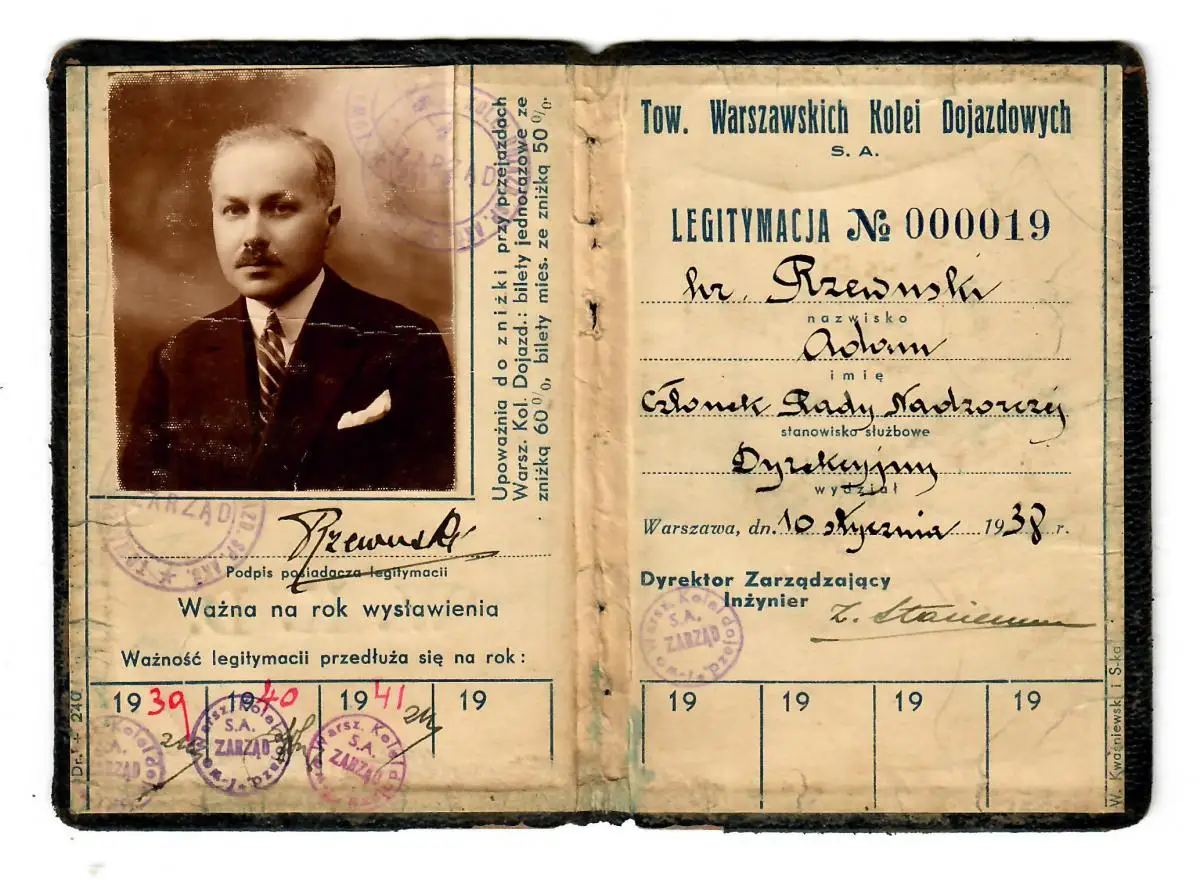 Upoważnia do zniżki przy przejazdach
Warsz. Kol. Dojazd.: bilety jednorazowe ze
zniżką 60%, bilety mies. ze zniżką 50%.
ZARZĄD
ZARZĄD
Rzewuski
Podpis posiadacza legitymacji
Ważna na rok wystawienia
Ważność legitymacji przedłuża się na rok:
1939 1940 1941 19
Warsz. Kolei Dojazd.
S.A.
ZARZĄD
Warsz. Kolei
S.A.
ZARZĄD
Tow. Warszawskich Kolei Dojazdowych
S. A.
LEGITYMACJA № 000019
hr. Rzewuski
nazwisko
Adam
imię
Członek Rady Nadzorczej
stanowisko służbowe
Dyrekcyjny
wydział
Warszawa, dn. 10 stycznia 1938 r.
Dyrektor Zarządzający
Inżynier
Warsz. Kolei Dojazd.
S.A.
ZARZĄD
19 19 19 19
W. Kwaśniewski i S-ka